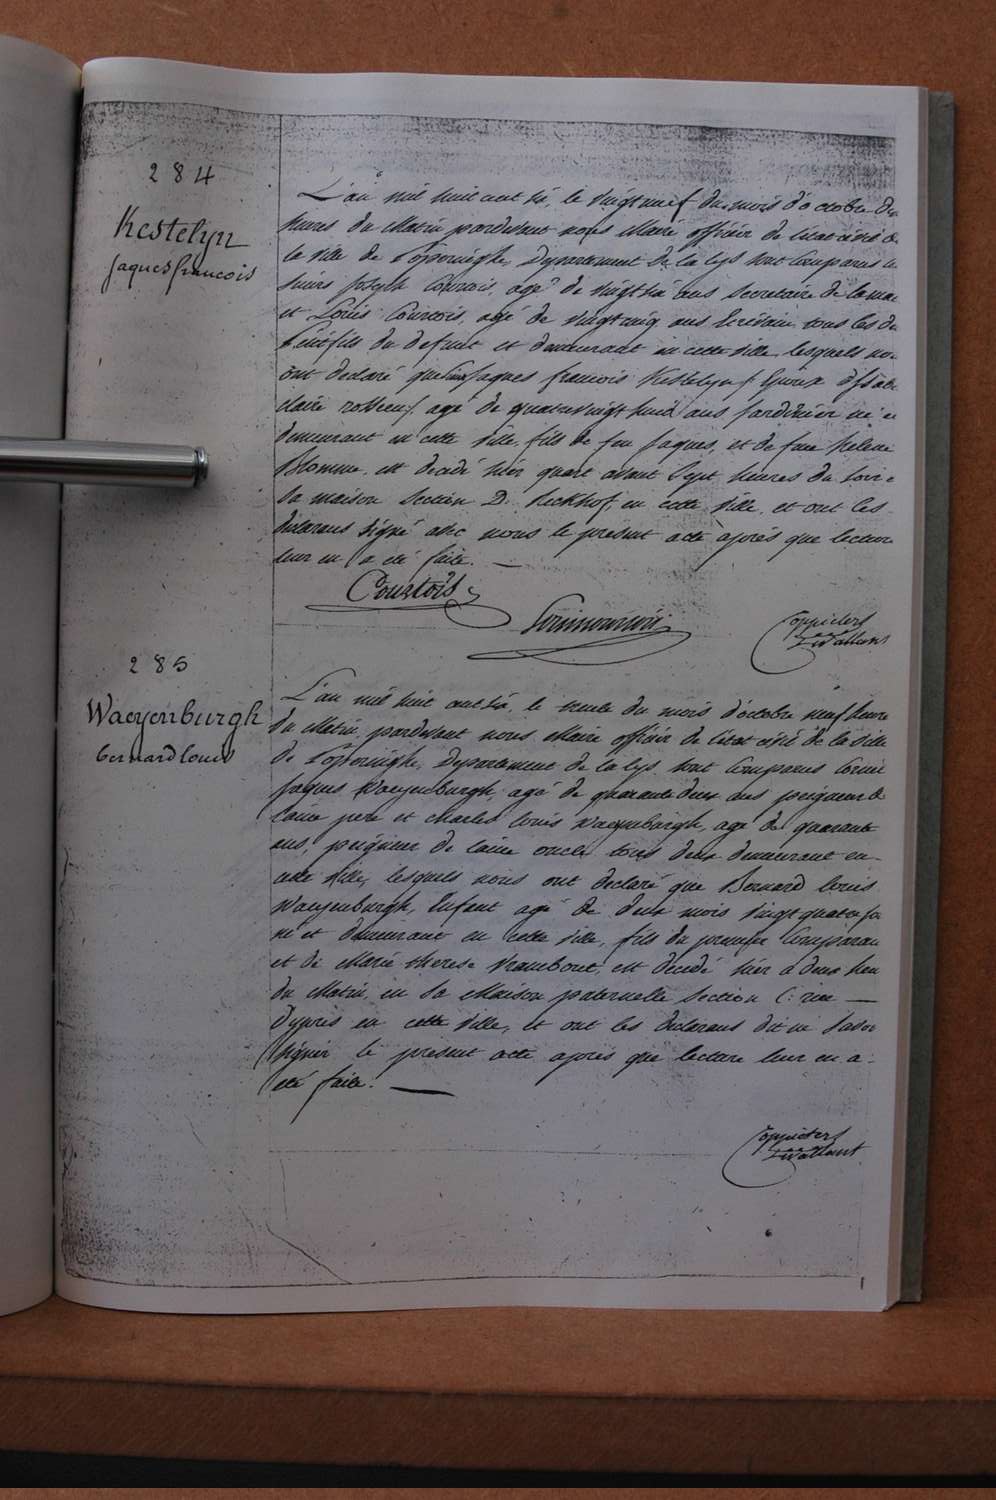 284
Kestelyn
Jaques francois
L'an mil huit cent six, le vingt neuf du mois d'octobre dix
heures du Matin pardevant nous Maire officier de l'etat civil de
la ville de Poperinghe, Departement de la Lys sont Comparus les
sieurs Joseph Courtois, agé de vingt six ans Secretaire de la mai
et Louis Courtois, agé de vingt cinq ans Ecrivain tous les de
petits fils du defunt et demeurant en cette ville, lesquels nou
ont declaré que Jaques francois Kestelyn Epoux d'Isab
claire agé de quatre vingt huit ans Jardinier né e
demeurant en cette ville, fils de feu Jaques, et de feue Helene
Blomme, est decedé hier quart avant Sept heures du Soir e
Sa maison Section D. en cette ville, et ont les
declarans Signé avec nous le present acte après que lecture
leur en a été faite.
Courtois
Louis Courtois
Coppieters
Wallant
285
Waeyenburgh
bernard louis
L'an mil huit cent six, le trente du mois d'octobre neuf heure
du Matin, pardevant nous Maire officier de l'etat civil de la ville
de Poperinghe, Departement de la Lys sont Comparus
Jaques Waeyenburgh, agé de quarante deux ans peigneur de
laine pere et Charles Louis Waeyenburgh, agé de quarante
ans, peigneur de laine oncle tous deux demeurant en
cette ville, lesquels nous ont declaré que Bernard louis
Waeyenburgh, Enfant agé de deux mois vingt quatre jo
né et demeurant en cette ville, fils du premier Comparan
et de Marie therese Vrambout, est decedé hier a deux heu
du Matin, en Sa Maison paternelle Section C: rue
d'ypres en cette ville, et ont les declarans dit ne Savoi
Signer le present acte après que lecture leur en a
été faite.
Coppieters
Wallant